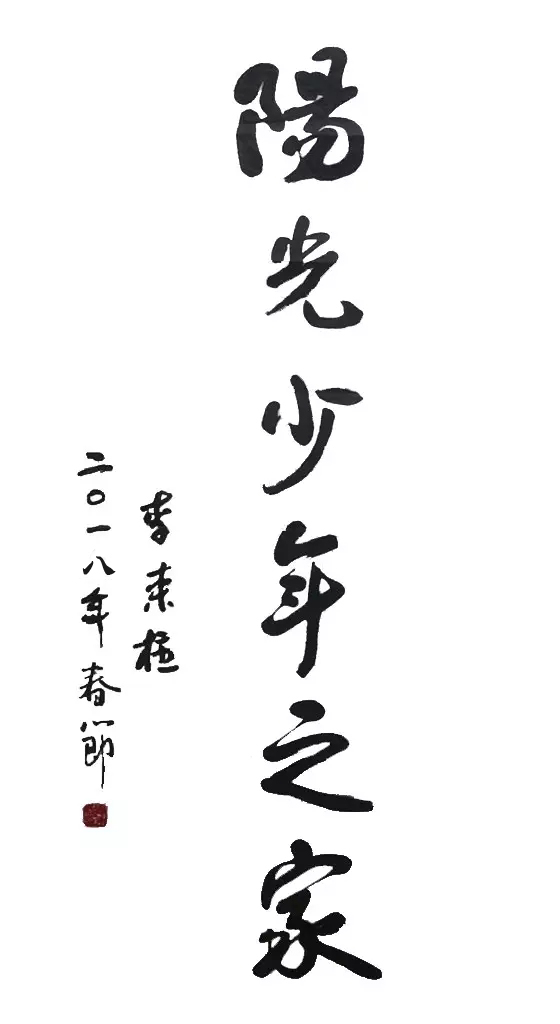 陽光少年之家
李来柱
二〇一八年春節